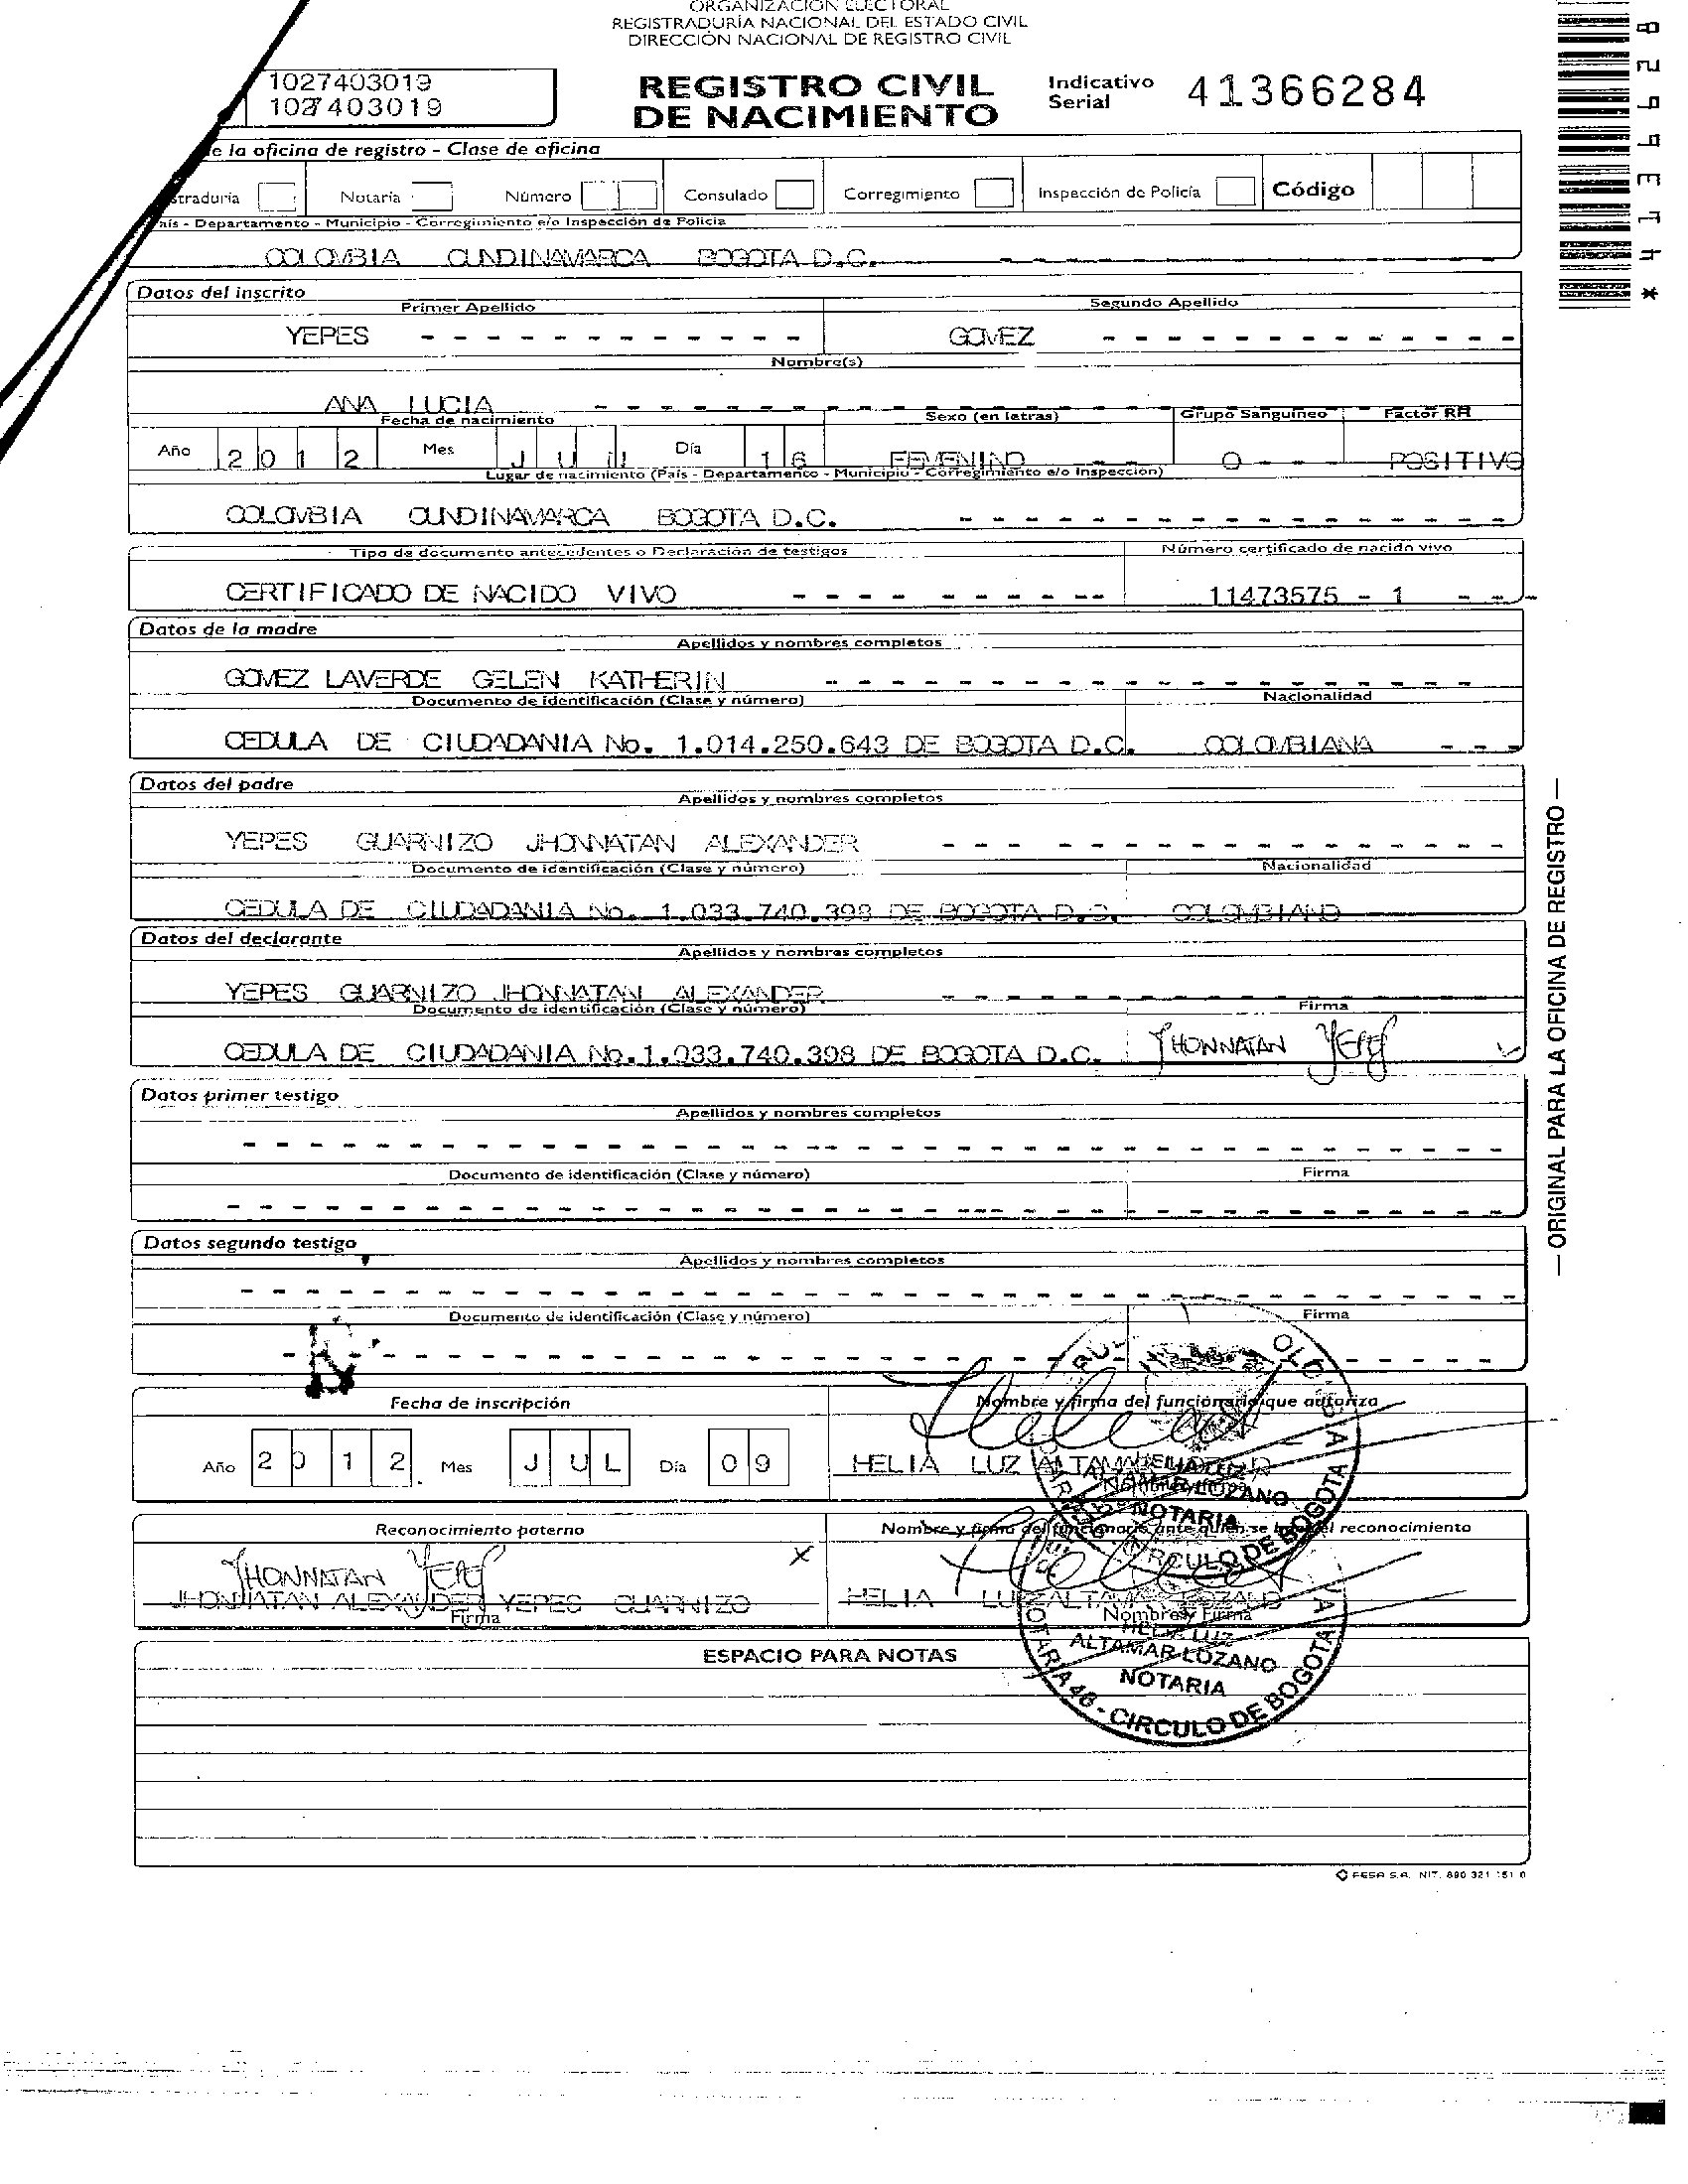 ORGANIZACIÓN ELECTORAL
REGISTRADURÍA NACIONAL DEL ESTADO CIVIL
DIRECCIÓN NACIONAL DE REGISTRO CIVIL
1027403019
1027403019
REGISTRO CIVIL
DE NACIMIENTO
Indicativo
Serial 41366284
e la oficina de registro - Clase de oficina
straduría Notaría Número Consulado Corregimiento Inspección de Policía Código
aís - Departamento - Municipio - Corregimiento e/o Inspección de Policía
COLOMBIA CUNDINAMARCA BOGOTA D.C.
Datos del inscrito
Primer Apellido Segundo Apellido
YEPES GOMEZ
Nombre(s)
ANA LUCIA
Fecha de nacimiento Sexo (en letras) Grupo Sanguíneo Factor RH
Año 2 0 1 2 Mes J U Día 1 6 FEMENINO O POSITIVO
Lugar de nacimiento (País - Departamento - Municipio - Corregimiento e/o Inspección)
COLOMBIA CUNDINAMARCA BOGOTA D.C.
Tipo de documento antecedentes o Declaración de testigos Número certificado de nacido vivo
CERTIFICADO DE NACIDO VIVO 11473575 - 1
Datos de la madre
Apellidos y nombres completos
GOMEZ LAVERDE GELEN KATHERIN
Documento de identificación (Clase y número) Nacionalidad
CEDULA DE CIUDADANIA No. 1.014.250.643 DE BOGOTA D.C. COLOMBIANA
Datos del padre
Apellidos y nombres completos
YEPES GUARNIZO JHONNATAN ALEXANDER
Documento de identificación (Clase y número) Nacionalidad
CEDULA DE CIUDADANIA No. 1.033.740.398 DE BOGOTA D.C. COLOMBIANO
Datos del declarante
Apellidos y nombres completos
YEPES GUARNIZO JHONNATAN ALEXANDER
Documento de identificación (Clase y número) Firma
CEDULA DE CIUDADANIA No.1.033.740.398 DE BOGOTA D.C. JHONNATAN YEPES
Datos primer testigo
Apellidos y nombres completos
Documento de identificación (Clase y número) Firma
Datos segundo testigo
Apellidos y nombres completos
Documento de identificación (Clase y número) Firma
Fecha de inscripción Nombre y firma del funcionario que autoriza
Año 2 0 1 2 Mes J U L Día 0 9 HELIA LUZ ALTAMAR
LOZANO
NOTARIA
CIRCULO DE BOGOTA
Reconocimiento paterno Nombre y firma del funcionario ante quien se hace el reconocimiento
JHONNATAN YEPES X
JHONNATAN ALEXANDER YEPES GUARNIZO HELIA LUZ ALTAMAR LOZANO
Firma Nombre y Firma
HELIA LUZ
ALTAMAR LOZANO
NOTARIA
NOTARIA 46 - CIRCULO DE BOGOTA
ESPACIO PARA NOTAS
FESA S.A. NIT. 890 321 151 0
— ORIGINAL PARA LA OFICINA DE REGISTRO —